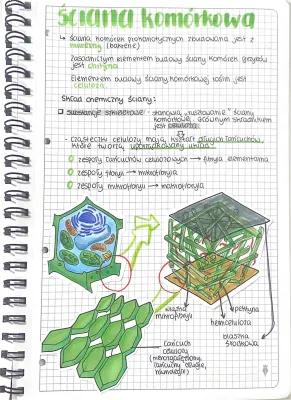 ściana komórkowa
↳ ściana komórek prokariotycznych zbudowana jest z
mureiny (bakterie)
Zasadniczym elementem budowy ściany komórek grzybów
jest chityna
Elementem budowy ściany komórkowej roślin jest
celuloza.
Skład chemiczny ściany:
substancje szkieletowe - stanowią „rusztowanie” ściany
komórkowej, głównym składnikiem
jest celuloza
- cząsteczki celulozy mają kształt długich łańcuchów,
które tworzą uporządkowany układ
zespoły łańcuchów celulozowych → fibryla elementarna
zespoły fibryli → mikrofibryla
zespoły mikrofibryli → makrofibryla
wiązka
mikrofibryli
pektyna
hemiceluloza
blaszka
środkowa
łańcuch
celulozy
łańcuchy długie,